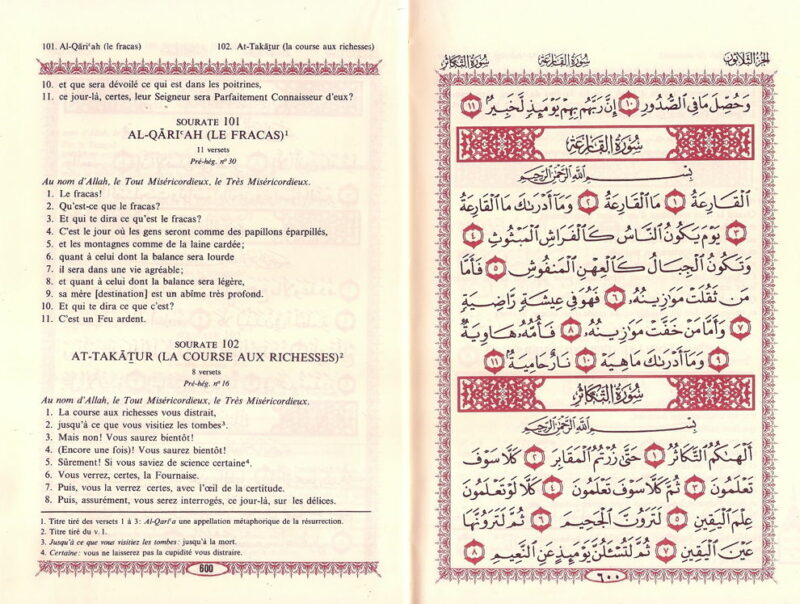 101. Al-Qāriʿah (le fracas) 102. At-Takāṯur (la course aux richesses)
10. et que sera dévoilé ce qui est dans les poitrines,
11. ce jour-là, certes, leur Seigneur sera Parfaitement Connaisseur d'eux?
SOURATE 101
AL-QĀRIʿAH (LE FRACAS)¹
11 versets
Pré-hég. n° 30
Au nom d'Allah, le Tout Miséricordieux, le Très Miséricordieux.
1. Le fracas!
2. Qu'est-ce que le fracas?
3. Et qui te dira ce qu'est le fracas?
4. C'est le jour où les gens seront comme des papillons éparpillés,
5. et les montagnes comme de la laine cardée;
6. quant à celui dont la balance sera lourde
7. il sera dans une vie agréable;
8. et quant à celui dont la balance sera légère,
9. sa mère [destination] est un abîme très profond.
10. Et qui te dira ce que c'est?
11. C'est un Feu ardent.
SOURATE 102
AT-TAKĀṮUR (LA COURSE AUX RICHESSES)²
8 versets
Pré-hég. n° 16
Au nom d'Allah, le Tout Miséricordieux, le Très Miséricordieux.
1. La course aux richesses vous distrait,
2. jusqu'à ce que vous visitiez les tombes³.
3. Mais non! Vous saurez bientôt!
4. (Encore une fois)! Vous saurez bientôt!
5. Sûrement! Si vous saviez de science certaine⁴.
6. Vous verrez, certes, la Fournaise.
7. Puis, vous la verrez certes, avec l'œil de la certitude.
8. Puis, assurément, vous serez interrogés, ce jour-là, sur les délices.
1. Titre tiré des versets 1 à 3: Al-Qari'a une appellation métaphorique de la résurrection.
2. Titre tiré du v. 1.
3. Jusqu'à ce que vous visitiez les tombes: jusqu'à la mort.
4. Certaine: vous ne laisserez pas la cupidité vous distraire.
600
الجزء الثلاثون سورة القارعة سورة التكاثر
وَحُصِّلَ مَا فِي ٱلصُّدُورِ ١٠ إِنَّ رَبَّهُم بِهِمْ يَوْمَئِذٍ لَّخَبِيرٌ ١١
سُورَةُ القَارِعَة
بِسْمِ ٱللَّهِ ٱلرَّحْمَٰنِ ٱلرَّحِيمِ
ٱلْقَارِعَةُ ١ مَا ٱلْقَارِعَةُ ٢ وَمَآ أَدْرَىٰكَ مَا ٱلْقَارِعَةُ
٣ يَوْمَ يَكُونُ ٱلنَّاسُ كَٱلْفَرَاشِ ٱلْمَبْثُوثِ ٤
وَتَكُونُ ٱلْجِبَالُ كَٱلْعِهْنِ ٱلْمَنفُوشِ ٥ فَأَمَّا
مَن ثَقُلَتْ مَوَٰزِينُهُۥ ٦ فَهُوَ فِي عِيشَةٍ رَّاضِيَةٍ
٧ وَأَمَّا مَنْ خَفَّتْ مَوَٰزِينُهُۥ ٨ فَأُمُّهُۥ هَاوِيَةٌ
٩ وَمَآ أَدْرَىٰكَ مَا هِيَهْ ١٠ نَارٌ حَامِيَةٌ ١١
سُورَةُ التَّكَاثُر
بِسْمِ ٱللَّهِ ٱلرَّحْمَٰنِ ٱلرَّحِيمِ
أَلْهَىٰكُمُ ٱلتَّكَاثُرُ ١ حَتَّىٰ زُرْتُمُ ٱلْمَقَابِرَ ٢ كَلَّا سَوْفَ
تَعْلَمُونَ ٣ ثُمَّ كَلَّا سَوْفَ تَعْلَمُونَ ٤ كَلَّا لَوْ تَعْلَمُونَ
عِلْمَ ٱلْيَقِينِ ٥ لَتَرَوُنَّ ٱلْجَحِيمَ ٦ ثُمَّ لَتَرَوُنَّهَا
عَيْنَ ٱلْيَقِينِ ٧ ثُمَّ لَتُسْـَٔلُنَّ يَوْمَئِذٍ عَنِ ٱلنَّعِيمِ ٨
٦٠٠